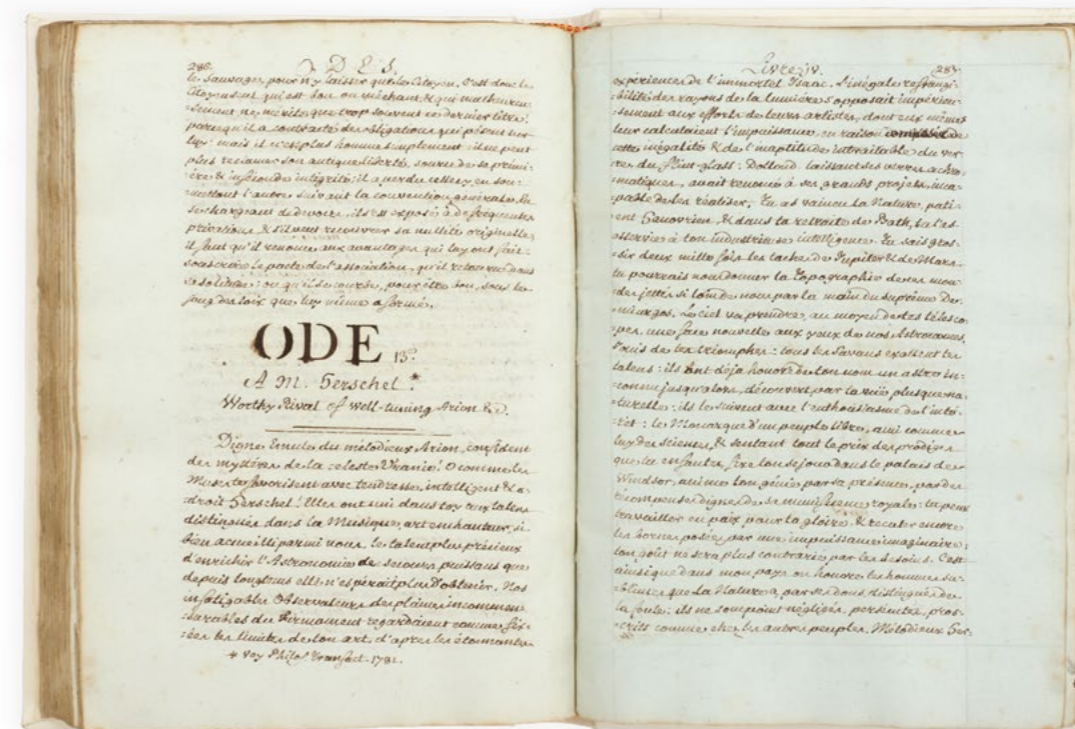 286. ODES.
le Sauvage, pour n'y laisser que le Citoyen. C'est donc le
Citoyen qui est bon ou méchant, & qui malheureu-
sement ne mérite que trop souvent ce dernier titre,
parce qu'il a contracté des obligations qui pèsent sur
luy: mais il n'est plus homme simplement: il ne peut
plus réclamer son antique liberté, source de sa premi-
ère & inféconde intégrité: il a perdu celle-cy en sou-
mettant l'autre suivant la convention générale. En
se chargeant de devoirs, il s'est exposé à de fréquentes
privations, & s'il veut recouvrer sa nullité originelle,
il faut qu'il renonce aux avantages qui luy ont fait
souscrire le pacte de l'association, qu'il retourne dans
sa solitude: ou qu'il se courbe, pour être bon, sous le
joug des loix que luy même a formé.
ODE 13e.
A M. Herschel *.
Worthy Rival of well-tuning Arion &c.
Digne Emule du mélodieux Arion, confident
des mystères de la céleste Uranie! O comme les
Muses te favorisent avec tendresse, intelligent & a-
droit Herschel! Elles ont uni dans toy aux talens
distingués dans la Musique, art enchanteur, si
bien accueilli parmi nous, le talent plus précieux
d'enrichir l'Astronomie de secours puissans que
depuis longtems elle n'espérait plus d'obtenir. Nos
infatigables Observateurs des plaines incommen-
surables du Firmament regardaient comme fix-
ées les limites de son art, d'après les étonnantes
* Voy Philos Transact. 1781.
Livre IV. 287.
expériences de l'immortel Isaac. L'inégale refrangi-
bilité des rayons de la lumière s'opposait impérieu-
sement aux efforts de leurs artistes, dont eux mêmes
leur calculaient l'impuissance en raison de
cette inégalité & de l'inaptitude intraitable du ver-
re du flint-glass: Dollond, laissant ses verres achro-
matiques, avait renoncé à ses grands projets, inca-
pable de les réaliser. Tu as vaincu la Nature, pati-
ent Hanovrien, & dans ta retraite de Bath, tu l'as
asservie à ton industrieuse intelligence. Tu sais gros-
sir deux mille fois les taches de Jupiter & de Mars.
tu pourrais nous donner la Topographie de ces mon-
des jettés si loin de nous par la main du suprême De-
miurgos. Le ciel va prendre, au moyen de tes télesco-
pes, une face nouvelle aux yeux de nos Astronomes.
Jouis de tes triomphes: tous les Savans exaltent tes
talens: ils ont déja honoré de ton nom un astre in-
connu jusqu'alors, découvert par ta vuë plusque na-
turelle: ils le suivent avec l'enthousiasme de l'inté-
rêt: le Monarque d'un peuple libre, ami comme
luy des sciences, & sentant tout le prix des prodiges
que tu enfantes, fixe ton sejour dans le palais de
Windsor, anime ton génie par sa présence, par des
récompenses dignes de sa munificence royale: tu peux
travailler en paix pour ta gloire, & reculer encore
les bornes posées par une impuissance imaginaire:
ton goût ne sera plus contrarié par les besoins. C'est
ainsi que dans mon pays on honore les hommes su-
blimes que la Nature a, par ses dons, distingués de
la foule: ils ne sont point négligés, persécutés, pros-
crits comme chez les autres peuples. Mélodieux Her-